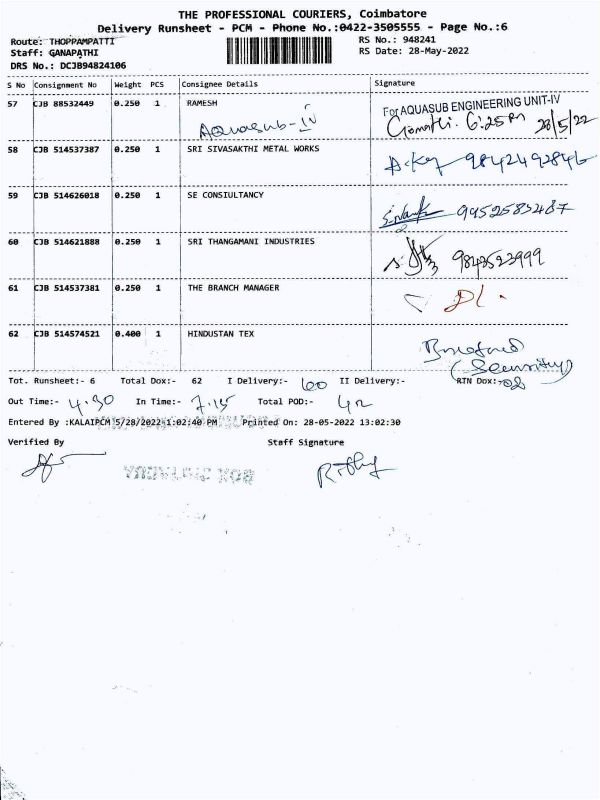 THE PROFESSIONAL COURIERS, Coimbatore
Delivery Runsheet - PCM - Phone No.:0422-3505555 - Page No.:6
Route: THOPPAMPATTI
RS No.: 948241
Staff: GANAPATHI
RS Date: 28-May-2022
DRS No.: DCJB94824106
S No Consignment No Weight PCS Consignee Details Signature
57 CJB 88532449 0.250 1 RAMESH
For AQUASUB ENGINEERING UNIT-IV
Aquasub-IV
Gomathi. 6:25 Pm 28/5/22
58 CJB 514537387 0.250 1 SRI SIVASAKTHI METAL WORKS
9842492846
59 CJB 514626018 0.250 1 SE CONSIULTANCY
9952583487
60 CJB 514621888 0.250 1 SRI THANGAMANI INDUSTRIES
9843523999
61 CJB 514537381 0.250 1 THE BRANCH MANAGER
62 CJB 514574521 0.400 1 HINDUSTAN TEX
(Security)
Tot. Runsheet:- 6 Total Dox:- 62 I Delivery:- 60 II Delivery:- RTN Dox:- 02
Out Time:- 4.30 In Time:- 7.15 Total POD:-
Entered By :KALAIPCM 5/28/2022 1:02:40 PM Printed On: 28-05-2022 13:02:30
Verified By Staff Signature